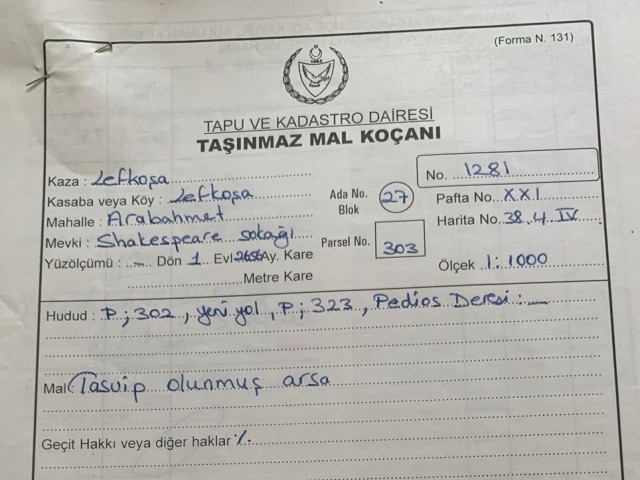 (Forma N. 131)
1983
TAPU VE KADASTRO DAİRESİ
TAŞINMAZ MAL KOÇANI
No. 1281
Kaza : Lefkoşa
Kasaba veya Köy : Lefkoşa
Mahalle : Arabahmet
Mevki : Shakespeare sokağı
Yüzölçümü : ...... Dön 1 Evl 2656 Ay. Kare
Metre Kare
Ada No. 27
Blok
Parsel No. 303
Pafta No. XXI
Harita No. 38.4.IV
Ölçek 1:1000
Hudud : P; 302, yeni yol, P; 323, Pedios Deresi :—
Mal Tasvip olunmuş arsa
Geçit Hakkı veya diğer haklar ٪